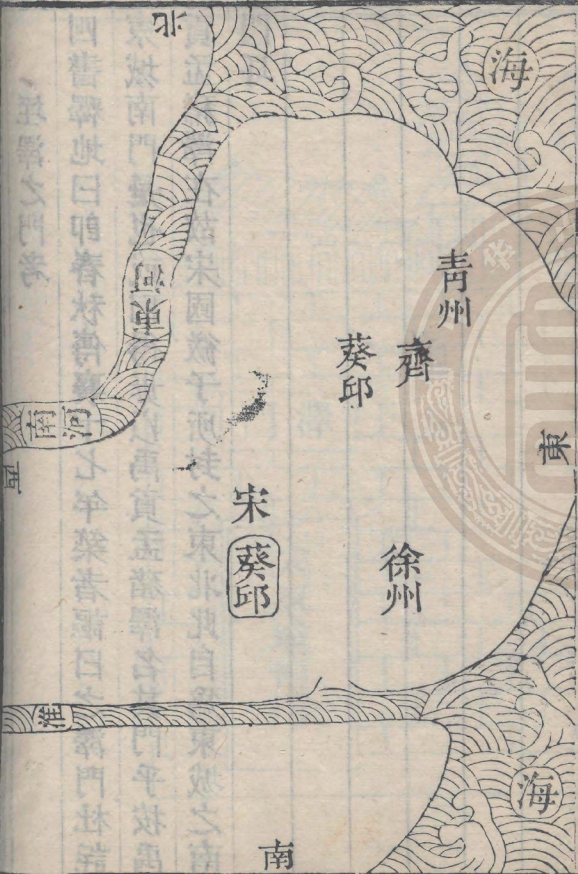 北
海
青州
齊
葵邱
東河
河南
西
東
宋
葵邱
徐州
淮
海
南